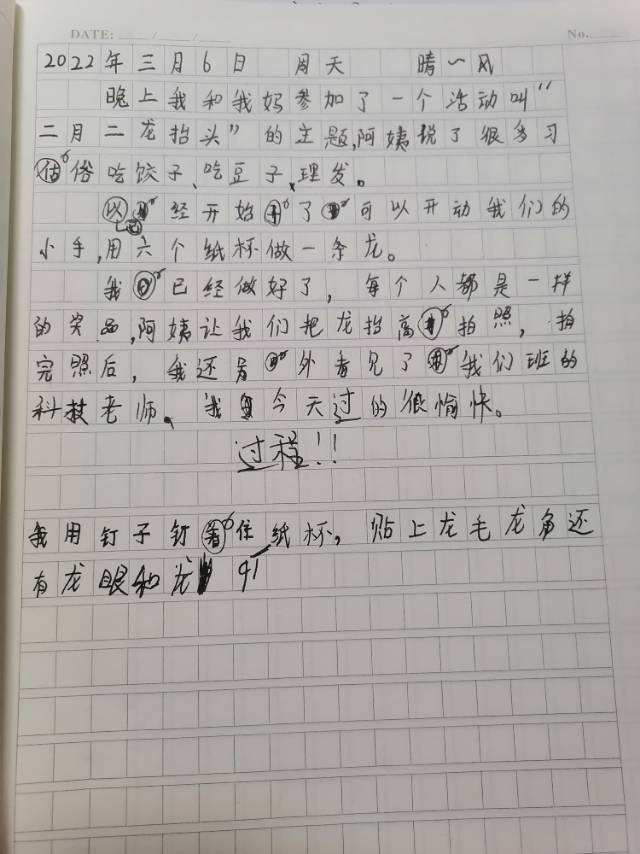 DATE: / /
No.
2022年三月6日 周天 晴 风
晚上我和我妈参加了一个活动叫“
二月二龙抬头”的主题,阿姨说了很多习
俗吃饺子、吃豆子、理发。
以已经开始了可以开动我们的
小手,用六个纸杯做一条龙。
我已经做好了,每个人都是一样
的奖品,阿姨让我们把龙抬高拍照,拍
完照后,我还看外看见了我们班的
科技老师。我今天过的很愉快。
过程!!
我用钉子钉住纸杯,贴上龙毛龙角还
有龙眼和龙